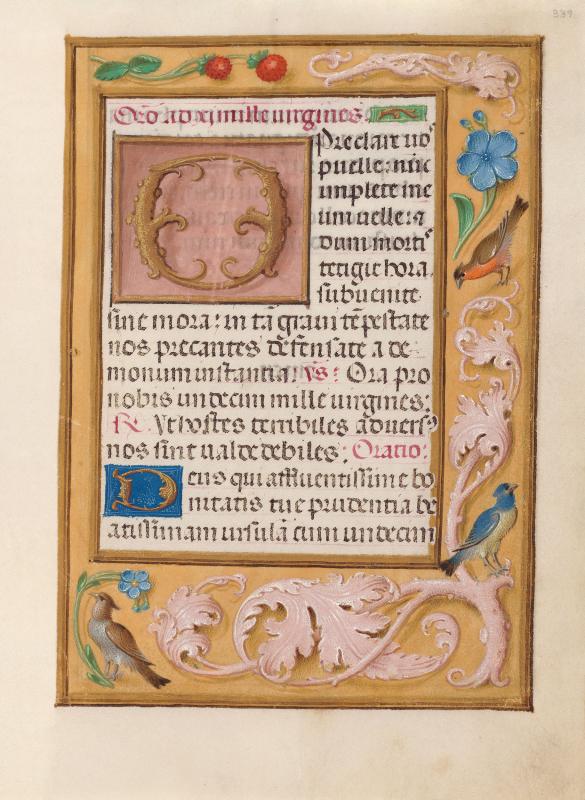 339
Oro ad xi mille uirgines:
O Preclare uoˢ
puelle: nūc
implete me
um uelle: ⁊
dum mortiˢ
tetigit hora.
subuenite
sine mora: in tā graui tēpestate
nos precantes defensate a de
monum instantia. Vs: Ora pro
nobis undecim mille uirgines:
R. Vt hostes terribiles aduersꝰ
nos sint ualde debiles: Oratio:
Deus qui affluentissime bo
nitatis tue prudentia be
atissimam ursulā cum undecim